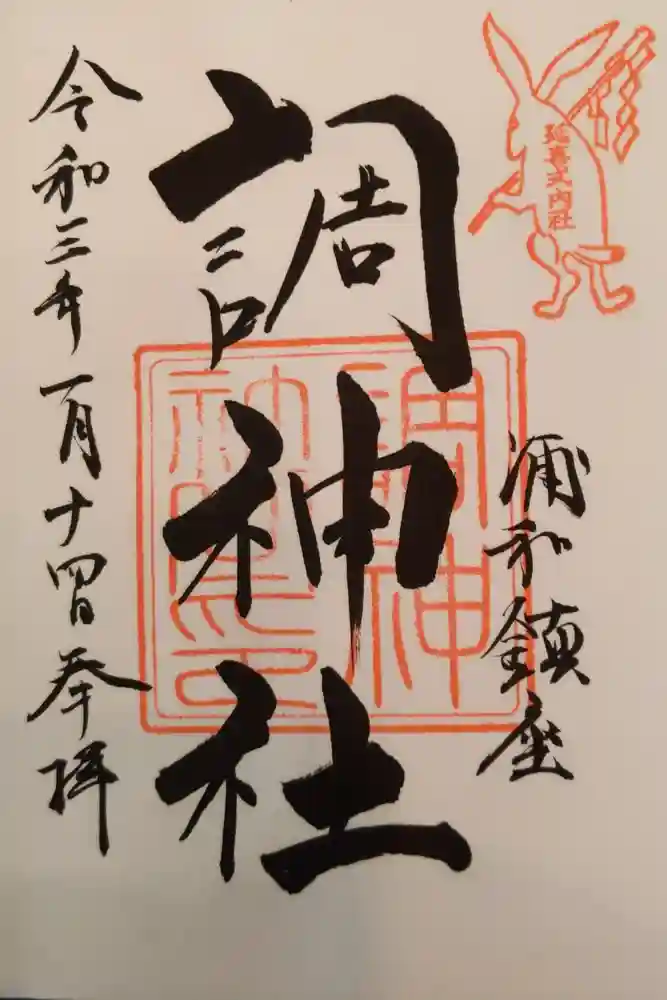 延喜式内社
浦和鎮座
調神社
調神
社之印
令和三年一月十四日奉拝